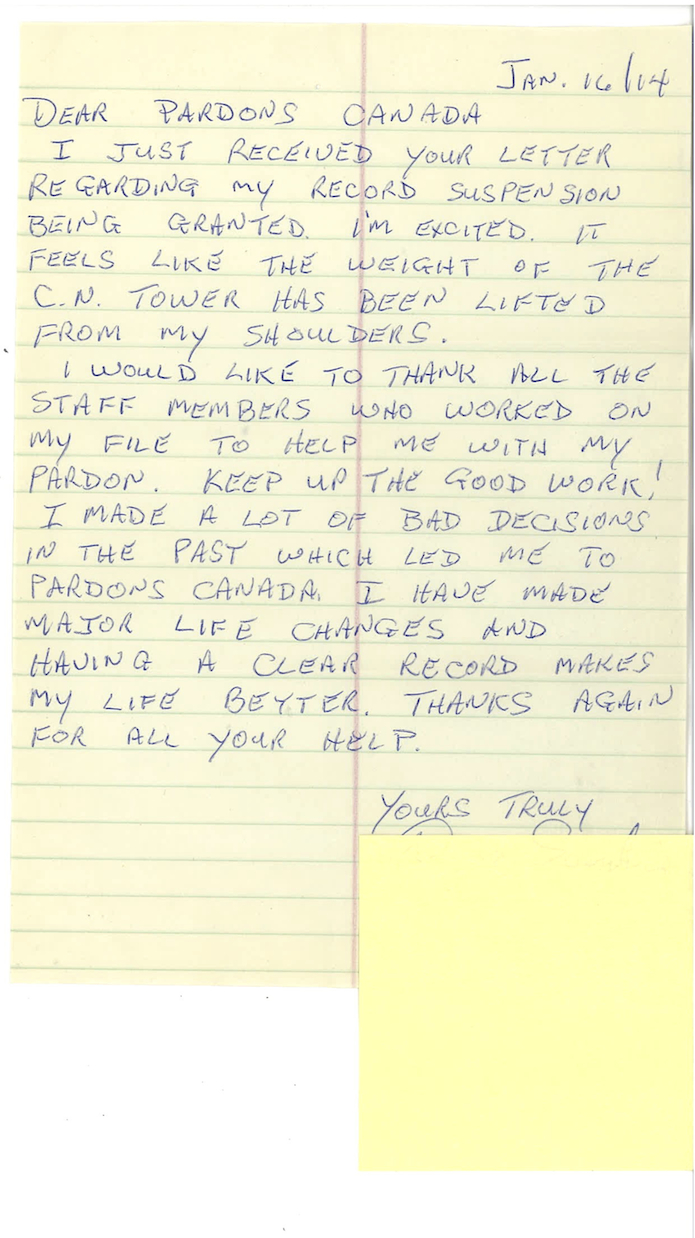 JAN. 16/14
DEAR PARDONS CANADA
I JUST RECEIVED YOUR LETTER
REGARDING MY RECORD SUSPENSION
BEING GRANTED. I'M EXCITED. IT
FEELS LIKE THE WEIGHT OF THE
C.N. TOWER HAS BEEN LIFTED
FROM MY SHOULDERS.
I WOULD LIKE TO THANK ALL THE
STAFF MEMBERS WHO WORKED ON
MY FILE TO HELP ME WITH MY
PARDON. KEEP UP THE GOOD WORK!
I MADE A LOT OF BAD DECISIONS
IN THE PAST WHICH LED ME TO
PARDONS CANADA. I HAVE MADE
MAJOR LIFE CHANGES AND
HAVING A CLEAR RECORD MAKES
MY LIFE BETTER. THANKS AGAIN
FOR ALL YOUR HELP.
YOURS TRULY